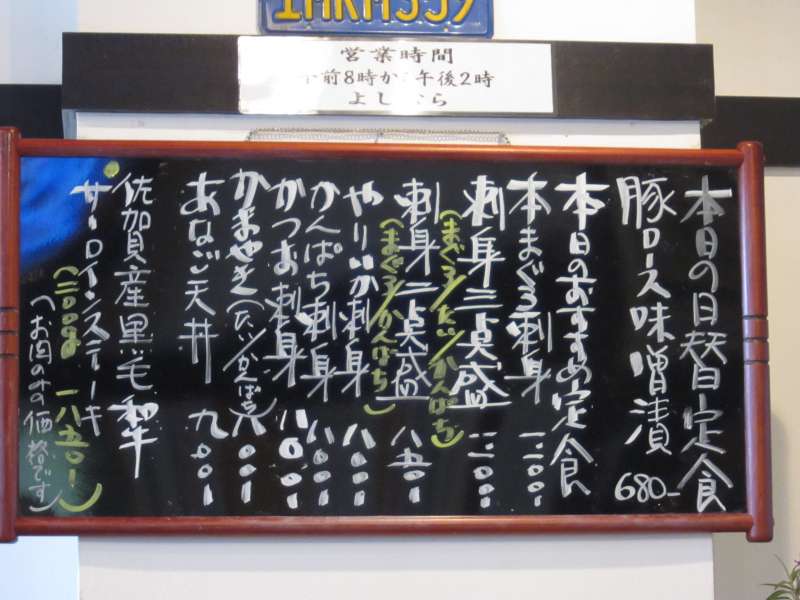 営業時間
午前8時から午後2時
よしむら
本日の日替定食
豚ロース味噌漬 680-
本日のおすすめ定食
本まぐろ刺身 一二〇〇ー
刺身三点盛 一二〇〇ー
(まぐろ/たい/かんぱち)
刺身二点盛 八五〇ー
(まぐろ/かんぱち)
やりいか刺身 八〇〇ー
かんぱち刺身 八〇〇ー
かつお刺身 八〇〇ー
かまやき(たい/かんぱち) 六〇〇ー
あなご天丼 九〇〇ー
佐賀産黒毛和牛
サーロインステーキ
(二〇〇g 一八五〇ー)
(お肉のみの価格です)